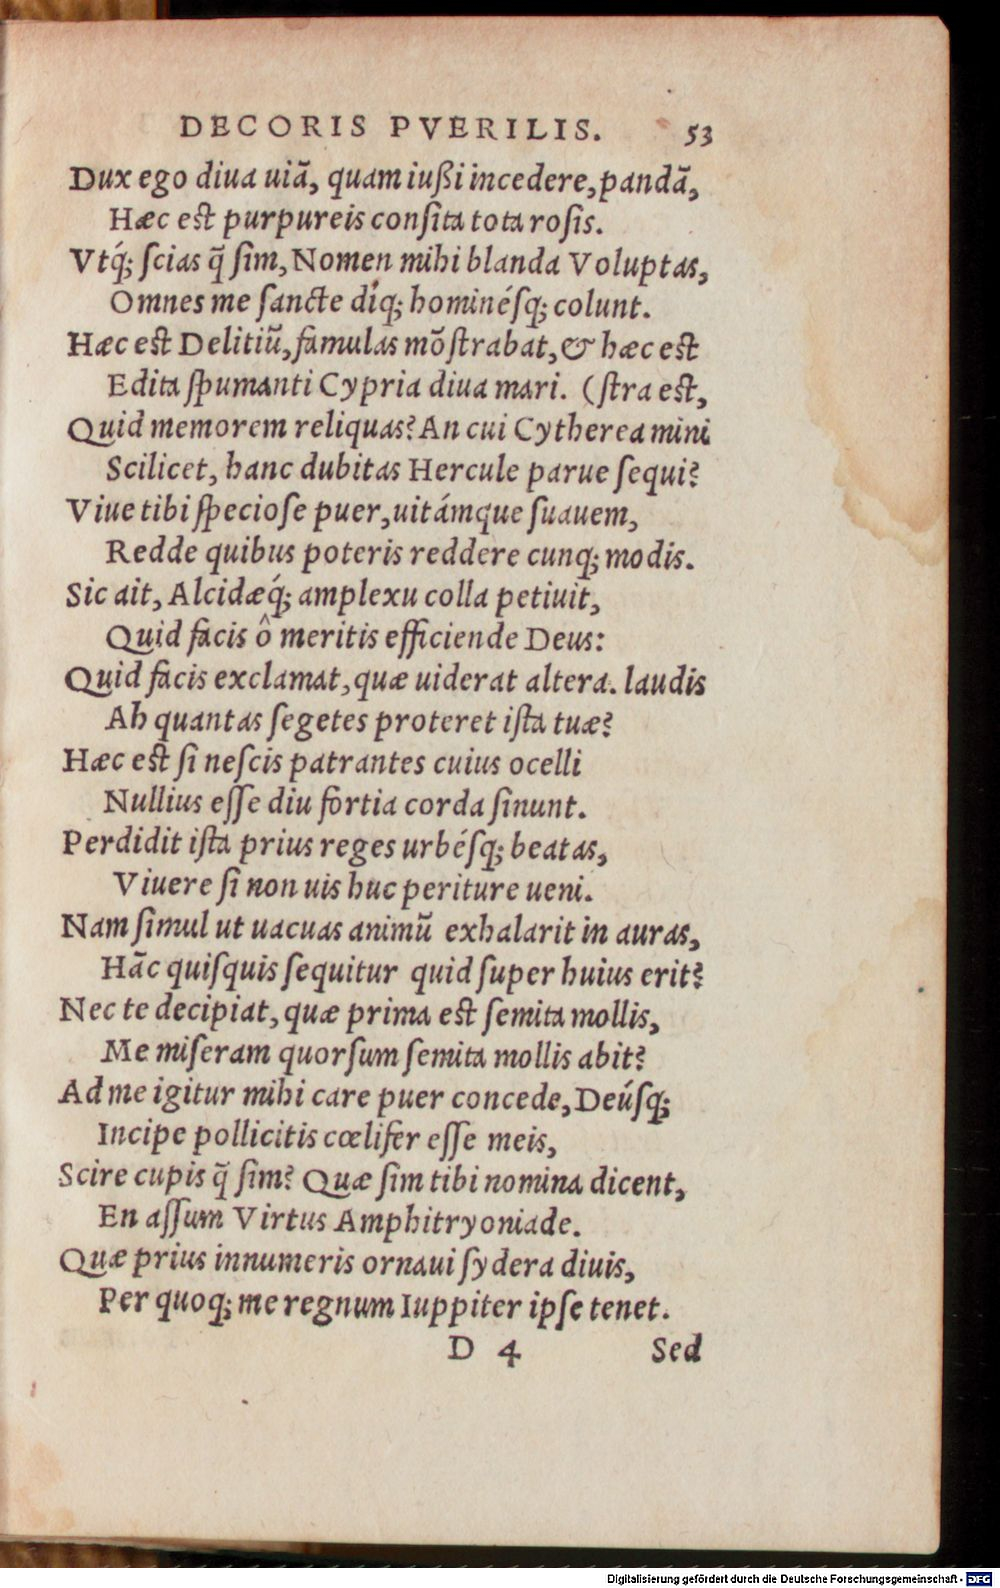 DECORIS PVERILIS. 53
Dux ego diua uiã, quam iußi incedere, pandã,
Hæc est purpureis consita tota rosis.
Vtq́; scias q̃ sim, Nomen mihi blanda Voluptas,
Omnes me sancte díq; hominésq; colunt.
Hæc est Delitiũ, famulas mõstrabat, & hæc est
Edita spumanti Cypria diua mari. (stra est,
Quid memorem reliquas? An cui Cytherea mini
Scilicet, hanc dubitas Hercule parue sequi?
Viue tibi speciose puer, uitámque suauem,
Redde quibus poteris reddere cunq; modis.
Sic ait, Alcidæq́; amplexu colla petiuit,
Quid facis ô meritis efficiende Deus:
Quid facis exclamat, quæ uiderat altera. laudis
Ah quantas segetes proteret ista tuæ?
Hæc est si nescis patrantes cuius ocelli
Nullius esse diu fortia corda sinunt.
Perdidit ista prius reges urbésq; beatas,
Viuere si non uis huc periture ueni.
Nam simul ut uacuas animũ exhalarit in auras,
Hãc quisquis sequitur quid super huius erit?
Nec te decipiat, quæ prima est semita mollis,
Me miseram quorsum semita mollis abit?
Ad me igitur mihi care puer concede, Deúsq;
Incipe pollicitis cœlifer esse meis,
Scire cupis q̃ sim? Quæ sim tibi nomina dicent,
En assum Virtus Amphitryoniade.
Quæ prius innumeris ornaui sydera diuis,
Per quoq; me regnum Iuppiter ipse tenet.
D 4 Sed
Digitalisierung gefördert durch die Deutsche Forschungsgemeinschaft - DFG